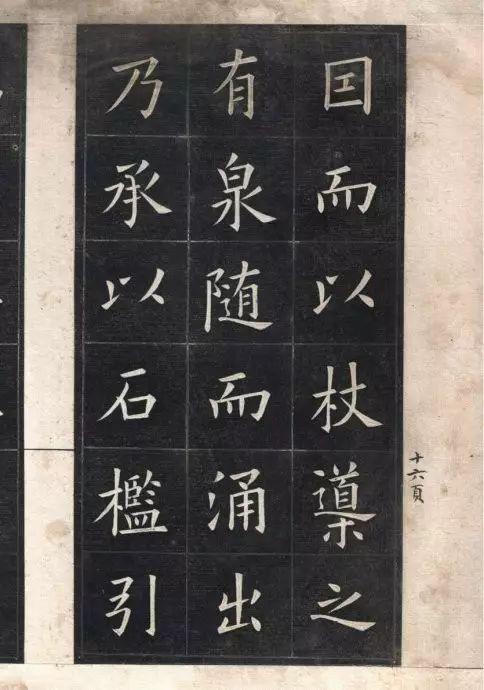 囙而以杖導之
有泉随而涌出
乃承以石檻引
十六頁